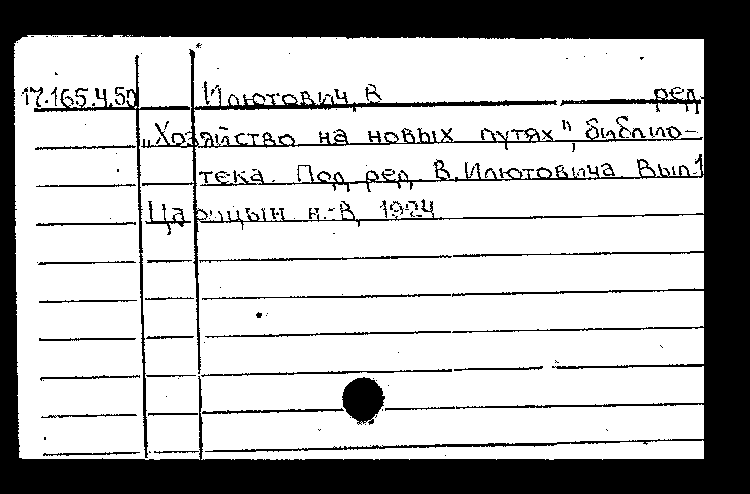 17.165.4.50 Илютович, В ред.
„Хозяйство на новых путях", библио-
тека. Под ред. В. Илютовича. Вып. 1
Царицын н.-В, 1924